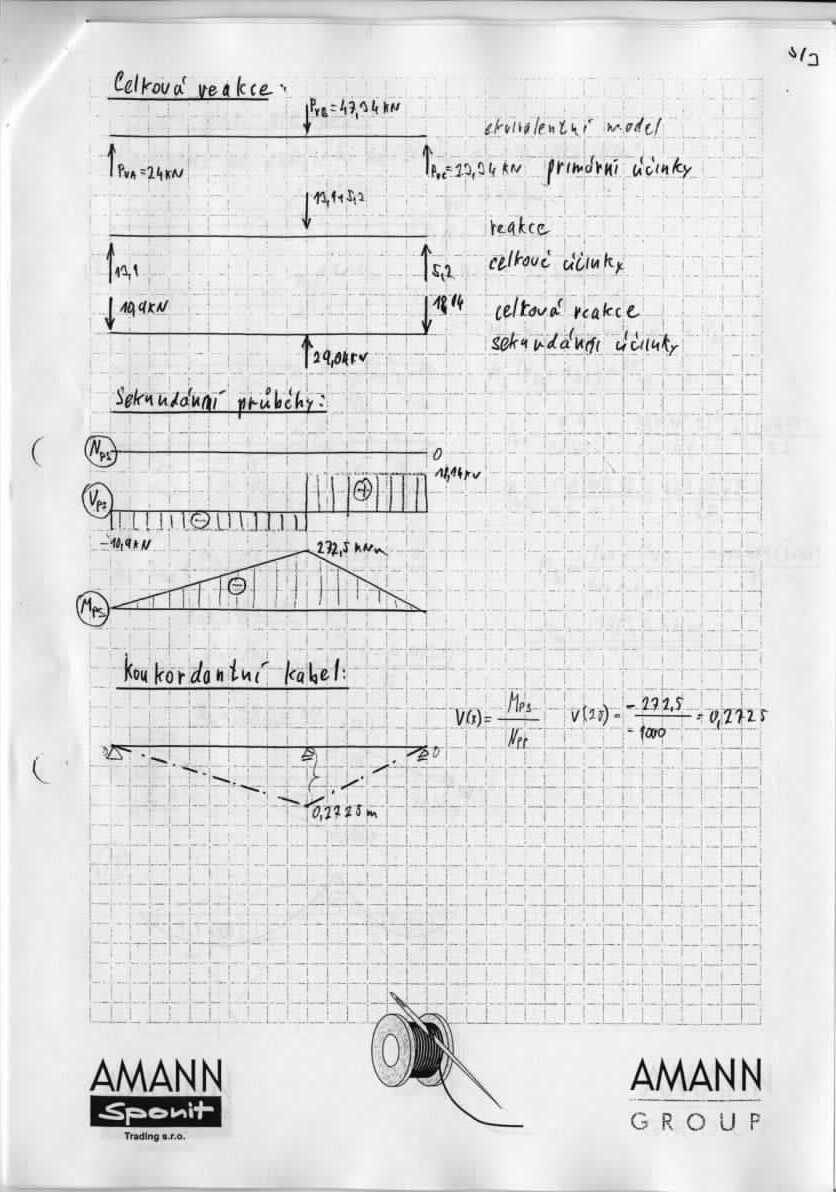 3/3
Celková reakce:
PVB=47,94 kN
ekvivalentní model
PVA=24kN
PVC=23,94 kN
primární účinky
13,1+5,2
reakce
13,1
5,2
celkové účinky
10,9kN
18,14
celková reakce
29,04kN
sekundární účinky
Sekundární průběhy:
Nps
0
18,14kN
Vps
+
-
-10,9kN
272,5 kNm
-
Mps
Konkordantní kabel:
V(x)= Mps / Npr V(25)= -272,5 / -1000 = 0,2725
0
0,2725m
AMANN
Sponit
Trading s.r.o.
AMANN
GROUP